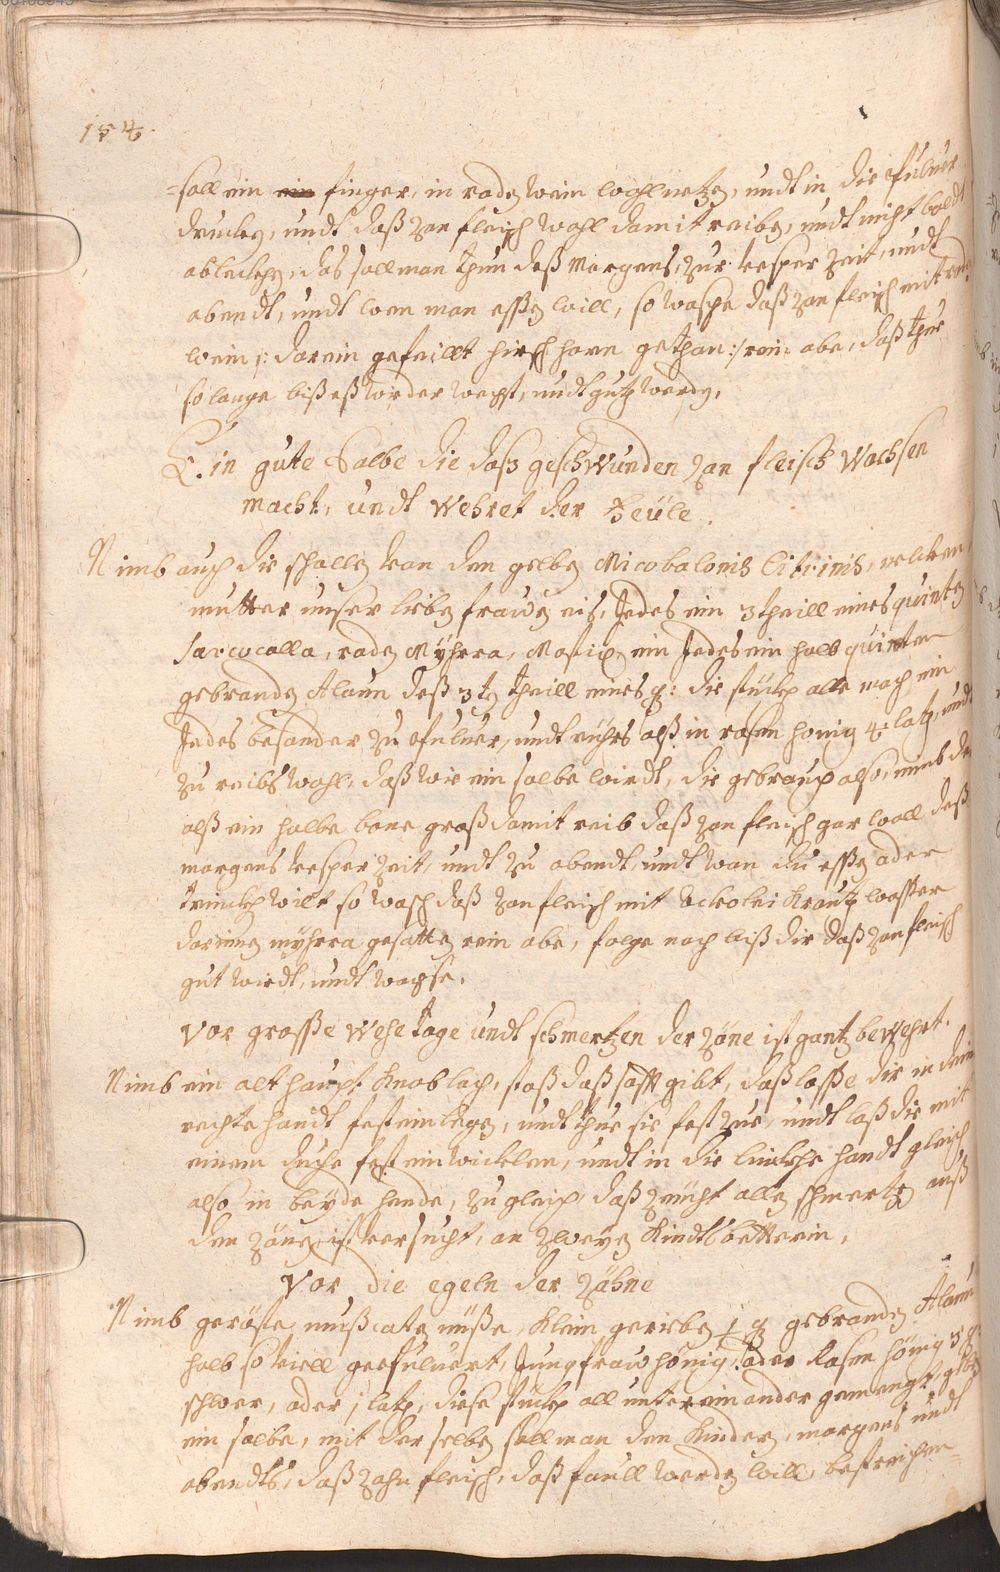 154.
soll ein ein finger, in roden wein wohl netzen, undt in die Pulver
drucken, undt daß zan fleisch wohl damit reiben, undt nicht baldt
ablecken, das soll man thun deß Morgens, zur vesper zeit, undt
abendt, undt wen man essen will, so wasche daß zan fleisch mit roden
wein /: darein gefeillt hirsch horn gethan :/ rein abe, daß thue
so lange biß eß wieder wechst, undt gutz werde,
Ein gute Salbe die daß geschwunden zan fleisch Wachsen
macht, undt Wehret der Feüle.
Nimb auch die schallen van den gelben Mirobalonis Citrinis,
mutter unser lieben frawen eis, Jedes ein 3 theill eines quinten
Sarcocolla, roden Myhrra, Mastix, ein Jedes ein halb quinten
gebranden Alaun deß 3te theill eines q: die stück alle mach ein
Jedes besonder zu Pulver, undt rührs alß in rosen honig 4 lath, undt
zu reibs wohl, daß wie ein salbe wirdt, die gebrauch also, nimb
alß ein halbe bone groß damit reib daß zan fleisch gar woll deß
morgens vesper zeit undt zu abendt, undt wan du essen oder
trincken wilt so wasch daß zan fleisch mit Ackolei Kraut wasser
darinnen myhrra gesotten rein abe, folge nach biß dir daß zan fleisch
gut wirdt, undt wachse.
Vor grosse Wehe tage undt schmertzen der zäne ist gantz bewehrt.
Nimb ein alt haupt Knoblach, stoß daß safft gibt, daß lasse dir in dein
rechte handt fest ein legen, undt thue sie fest zue, undt laß die mit
einem duche fest einwicklen, undt in die lincke handt gleich
also in beyde hende, zu gleich, daß zeücht alle schmertzen auß
den zänen, ist versucht, an zweyen Kindtbetterin,
Vor die egeln der Zähne
Nimb geröste mußcaten nüsse, klein gerieben j q gebranden Alaun
halb so viell gepulvert, Jungfraw hönig, oder Rosen hönig 3 q:
schwer, oder j lath, diese stück all unter ein ander gemengt,
ein salbe, mit der selben soll man den Kindern, morgens undt
abendts, daß zahn fleisch, daß faull werden will, bestreichen